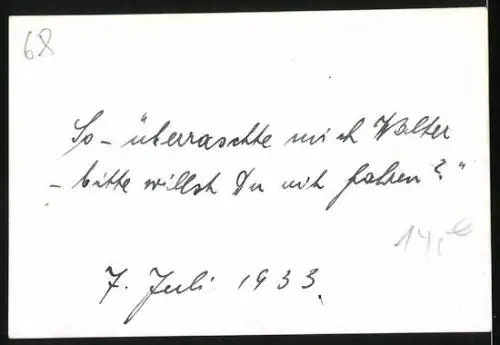 68
So - überraschte mich Walter
- bitte willst Du mit fahren?"
14,-€
7. Juli 1933.